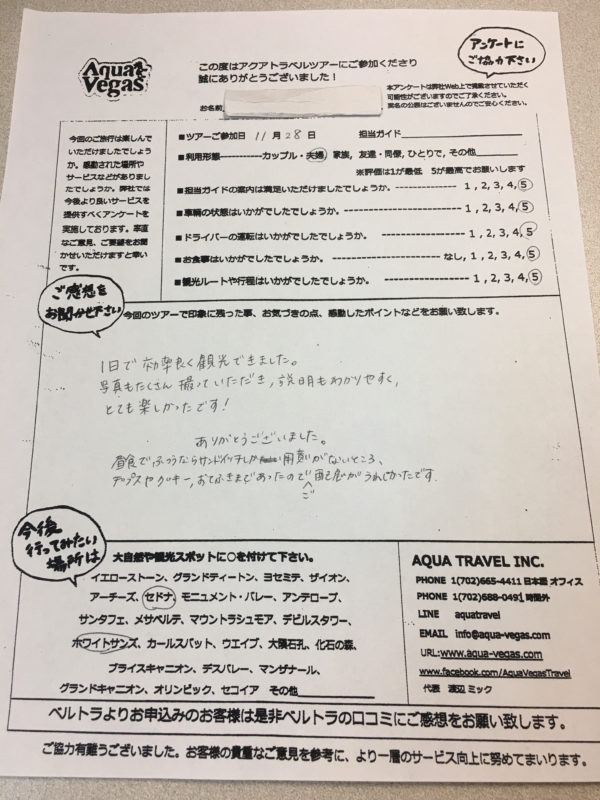 Aqua Vegas
この度はアクアトラベルツアーにご参加くださり
誠にありがとうございました！
アンケートに
ご協力下さい
本アンケートは弊社Web上で掲載させていただく
可能性がございますのでご了承ください。
実名の公表はございませんのでご安心ください。
お名前
今回のご旅行は楽しんで
いただけましたでしょう
か。感動された場所や
サービスなどがありまし
たでしょうか。弊社では
今後より良いサービスを
提供すべくアンケートを
実施しております。率直
なご意見、ご要望をお聞
かせいただけますと幸い
です。
■ツアーご参加日 11月28日 担当ガイド
■利用形態-----------カップル・夫婦, 家族, 友達・同僚, ひとりで, その他
※評価は1が最低 5が最高でお願いします
■担当ガイドの案内は満足いただけましたでしょうか。 ---------------- 1, 2, 3, 4, 5
■車輌の状態はいかがでしたでしょうか。 ---------------------------- 1, 2, 3, 4, 5
■ドライバーの運転はいかがでしたでしょうか。 --------------------- 1, 2, 3, 4, 5
■お食事はいかがでしたでしょうか。 ----------------------- なし, 1, 2, 3, 4, 5
■観光ルートや行程はいかがでしたでしょうか。 ------------------ 1, 2, 3, 4, 5
ご感想を
お聞かせ下さい
今回のツアーで印象に残った事、お気づきの点、感動したポイントなどをお願い致します。
1日で効率良く観光できました。
写真もたくさん撮っていただき,説明もわかりやすく,
とても楽しかったです！
ありがとうございました。
昼食でふつうならサンドイッチしか用意がないところ、
チップスやクッキー,おてふきまであったのでご配慮がうれしかったです.
今後
行ってみたい
場所は
大自然や観光スポットに○を付けて下さい。
イエローストーン、グランドティートン、ヨセミテ、ザイオン、
アーチーズ、セドナ、モニュメント・バレー、アンテロープ、
サンタフェ、メサベルテ、マウントラシュモア、デビルスタワー、
ホワイトサンズ、カールスバット、ウエイブ、大隕石孔、化石の森、
ブライスキャニオン、デスバレー、マンザナール、
グランドキャニオン、オリンピック、セコイア その他
AQUA TRAVEL INC.
PHONE 1(702)665-4411 日本語 オフィス
PHONE 1(702)688-0491 時間外
LINE aquatravel
EMAIL info@aqua-vegas.com
URL:www.aqua-vegas.com
www.facebook.com/AquaVegasTravel
代表 渡辺 ミック
ベルトラよりお申込みのお客様は是非ベルトラの口コミにご感想をお願い致します。
ご協力有難うございました。お客様の貴重なご意見を参考に、より一層のサービス向上に努めてまいります。